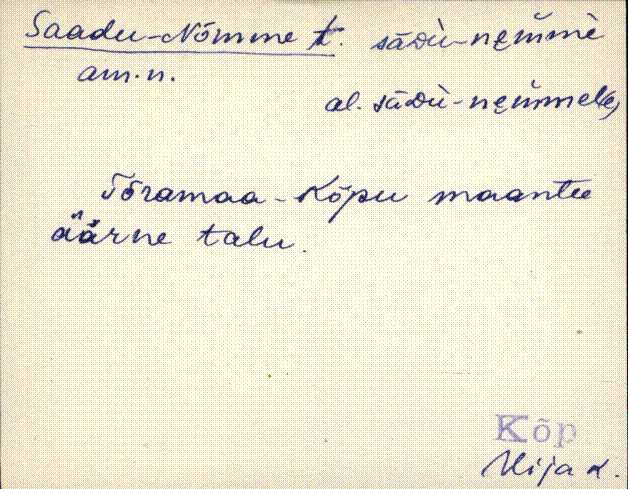 Saadu-Nõmme t. sāDù-nęm̆mè
am.n.
al. sāDù-nęm̆mel(e)
Tõramaa-Kõpu maantee
äärne talu.
Kõp
Uija k.